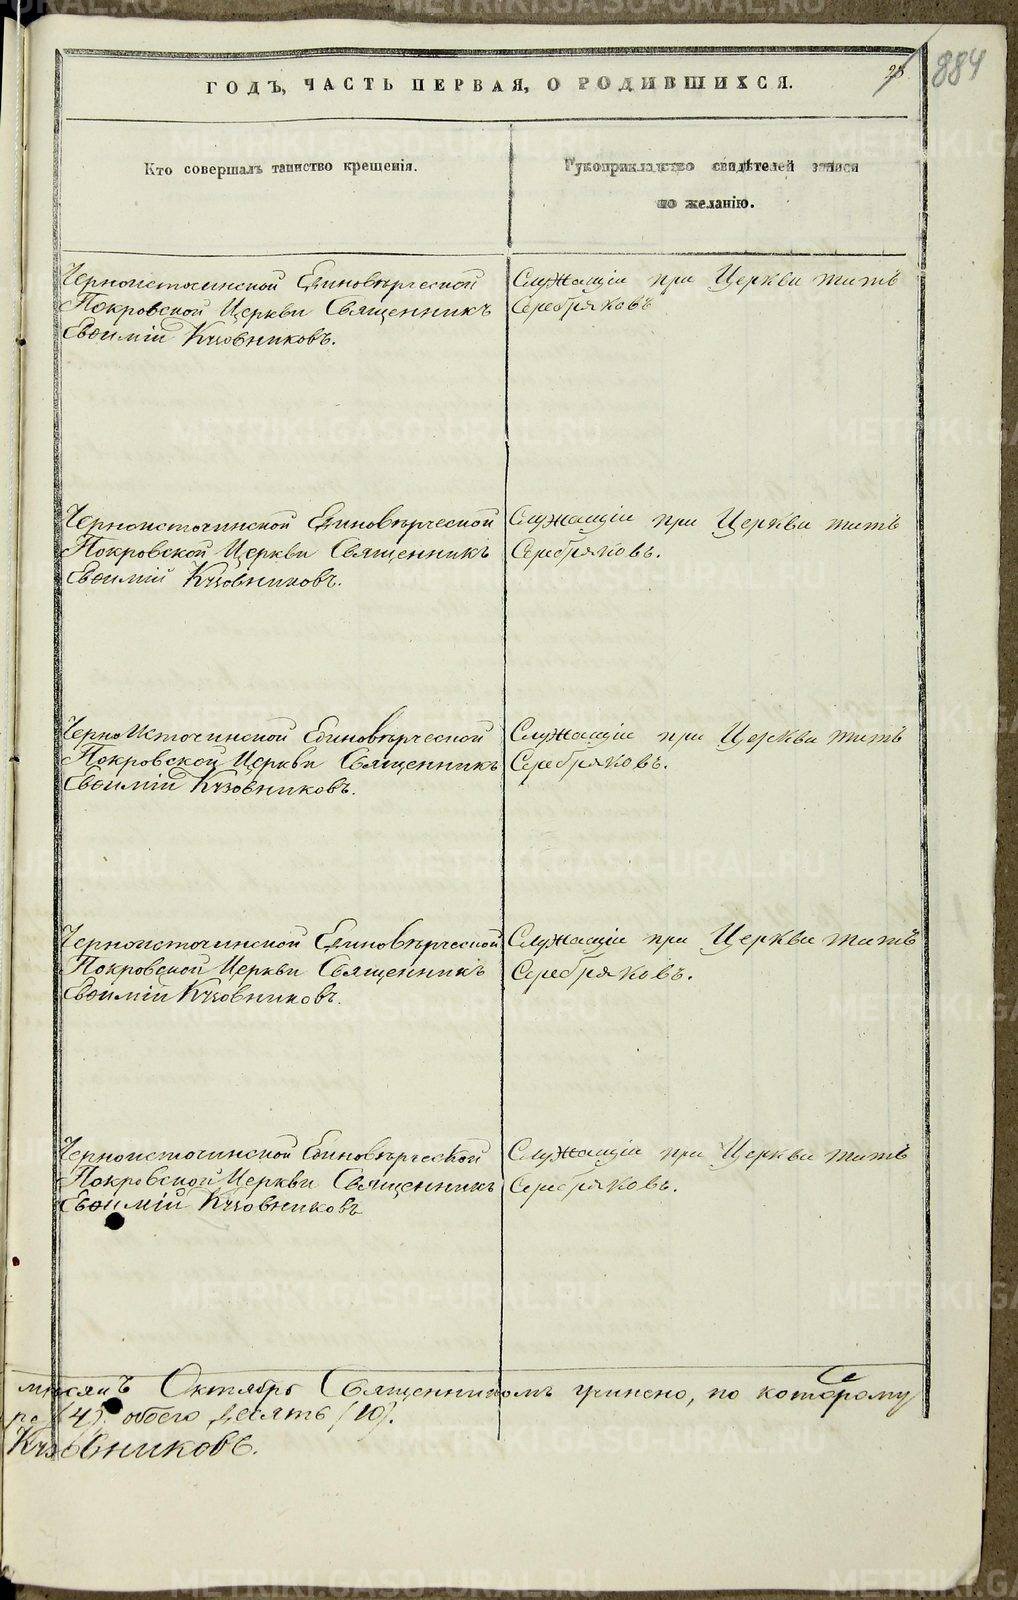 884
ГОДЪ, ЧАСТЬ ПЕРВАЯ, О РОДИВШИХСЯ.
Кто совершалъ таинство крещенія.
Рукоприкладство свидѣтелей записи
по желанію.
Черноисточинской Единовѣрческой
Покровской Церкви Священникъ
Евѳимій Кузовниковъ.
Служащіе при Церкви
Серебряковъ
Черноисточинской Единовѣрческой
Покровской Церкви Священникъ
Евѳимій Кузовниковъ.
Служащіе при Церкви
Серебряковъ.
ЧерноИсточинской Единовѣрческой
Покровской Церкви Священникъ
Евѳимій Кузовниковъ.
Служащіе при Церкви
Серебряковъ.
Черноисточинской Единовѣрческой
Покровской Церкви Священникъ
Евѳимій Кузовниковъ.
Служащіе при Церкви
Серебряковъ.
Черноисточинской Единовѣрческой
Покровской Церкви Священникъ
Евѳимій Кузовниковъ
Служащіе при Церкви
Серебряковъ.
мѣсяцъ Октябрь Священникомъ учинено, по которому
(4). обоего десять (10).
Кузовниковъ.
METRIKI.GASO-URAL.RU